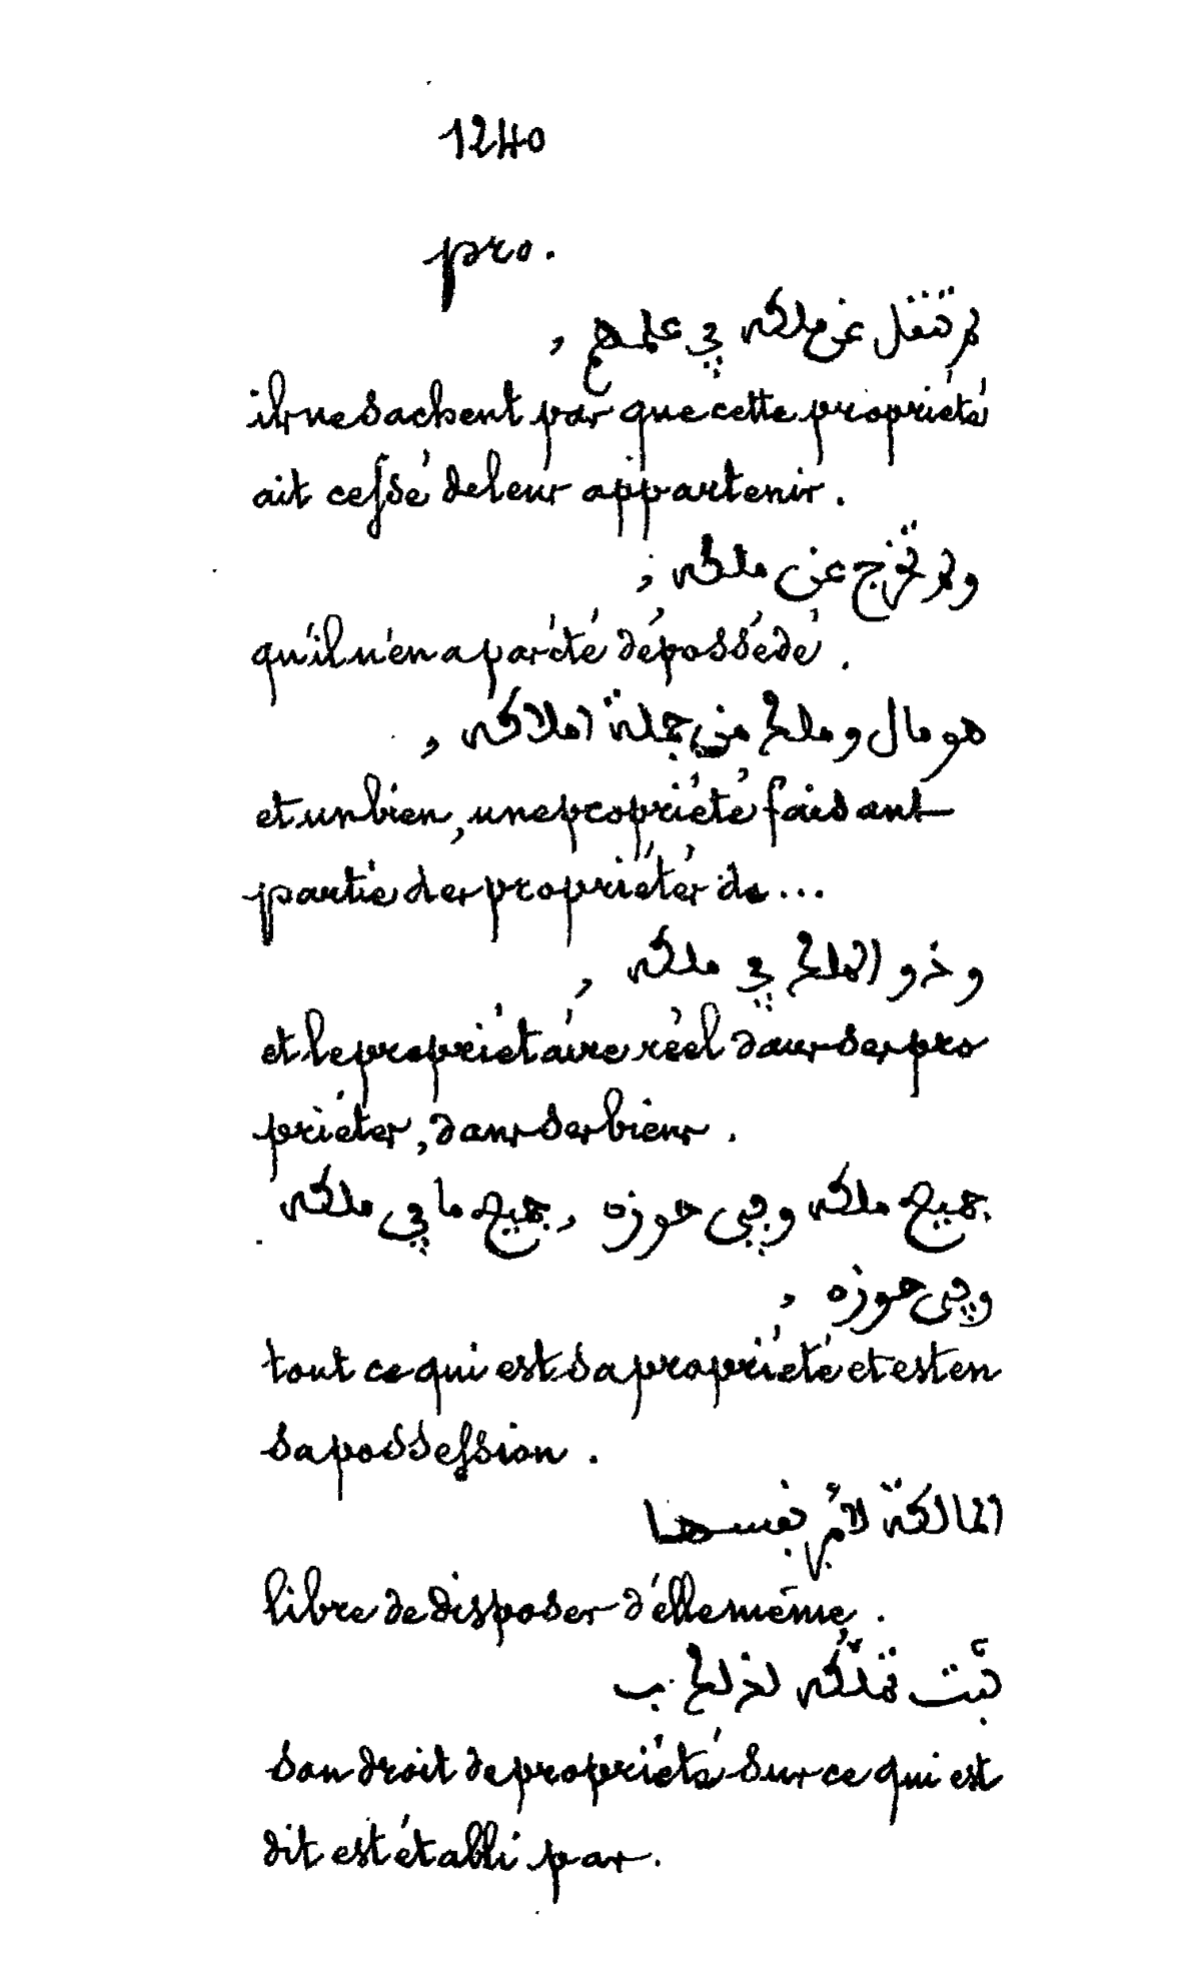 1240
pro.
لم تنتقل عن ملكه في علمهم ,
ils ne sachent pas que cette propriété
ait cessé de leur appartenir.
ولم تخرج عن ملكه ,
qu'il n'en a pas été dépossédé.
هو مال وملك من جملة املاكه ,
et un bien, une propriété faisant
partie des propriétés de...
وذو الملك في ملكه ,
et le propriétaire réel dans ses pro
priétés, dans ses biens.
جميع ملكه وفي حوزه , جميع ما في ملكه
وفي حوزه ,
tout ce qui est sa propriété et est en
sa possession.
المالكة لأمر نفسها
libre de disposer d'elle même.
ثبت تملكه لذلك ب
son droit de propriété sur ce qui est
dit est établi par.